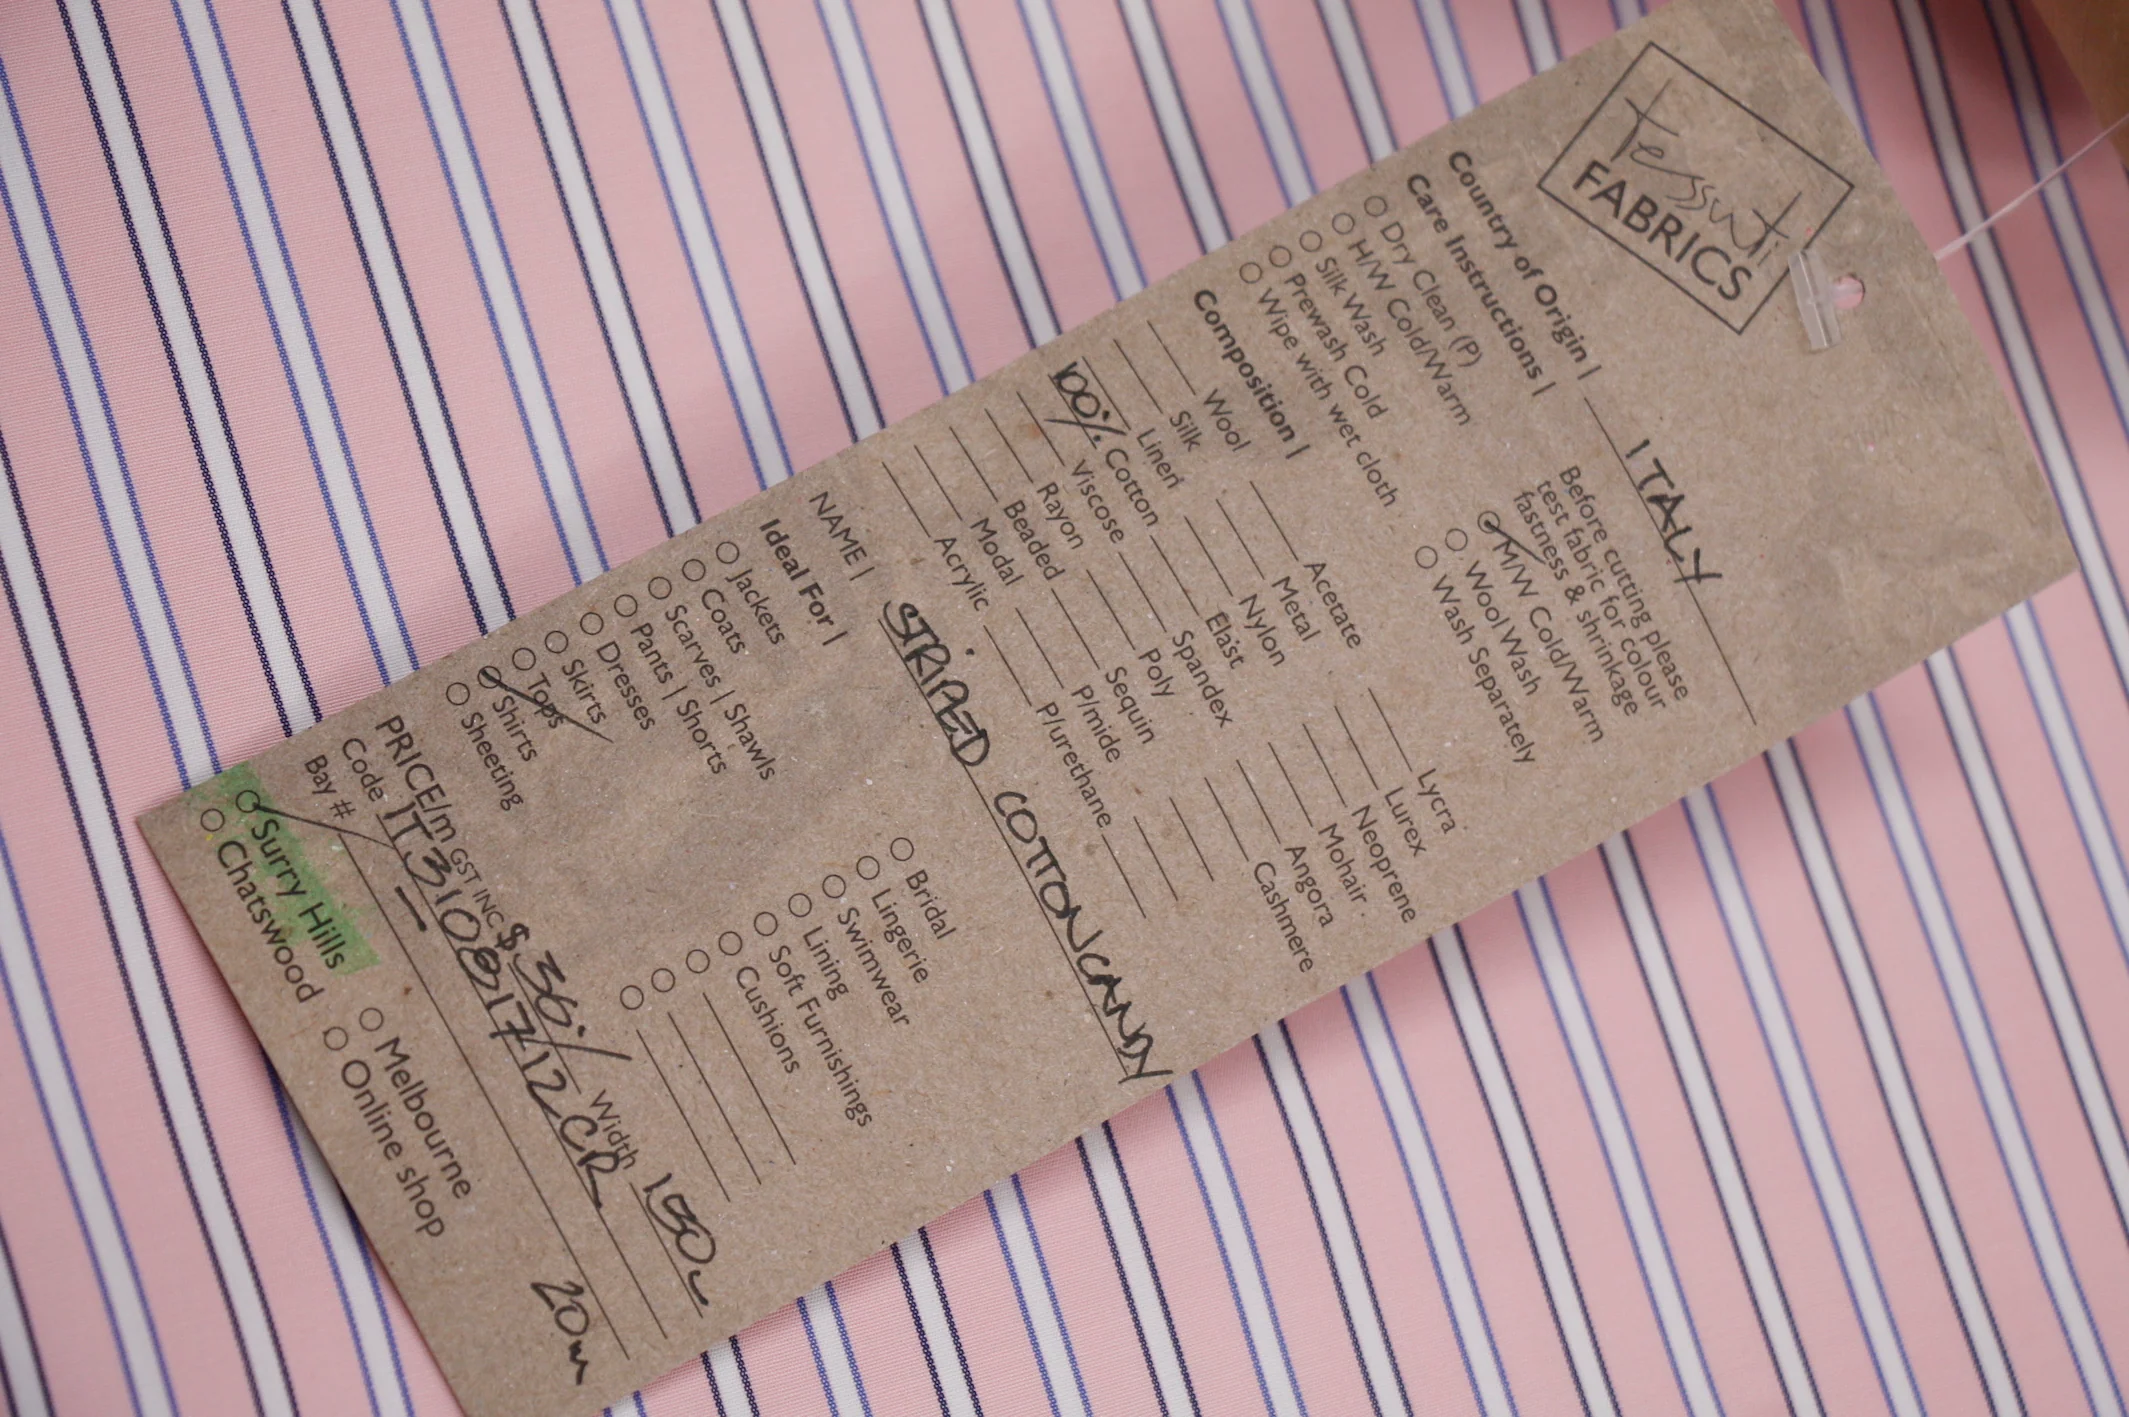 tessuti
FABRICS
Country of Origin | ITALY
Care Instructions | Before cutting please
test fabric for colour
fastness & shrinkage
Dry Clean (P) M/W Cold/Warm
H/W Cold/Warm Wool Wash
Silk Wash Wash Separately
Prewash Cold
Wipe with wet cloth
Composition |
Wool Acetate Lycra
Silk Metal Lurex
Linen Nylon Neoprene
100% Cotton Elaist Mohair
Viscose Spandex Angora
Rayon Poly Cashmere
Beaded Sequin
Modal P/mide
Acrylic P/urethane
NAME | STRIPED COTTON CANDY
Ideal For |
Jackets Bridal
Coats Lingerie
Scarves | Shawls Swimwear
Pants | Shorts Lining
Dresses Soft Furnishings
Skirts Cushions
Tops
Shirts
Sheeting
PRICE/m GST INC $ Width
Code
Bay # 20m
Surry Hills Melbourne
Chatswood Online shop